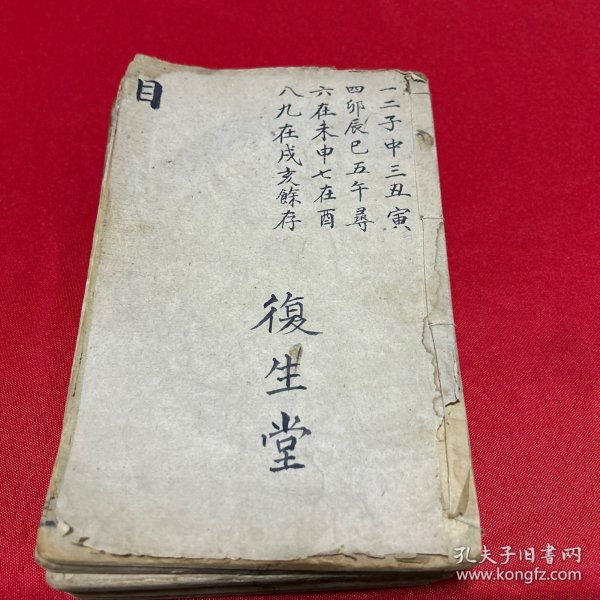 一二子中三丑寅
四卯辰巳五午尋
六在未申七在酉
八九在戌亥餘存
目
復生堂
孔夫子旧书网
www.kongfz.com